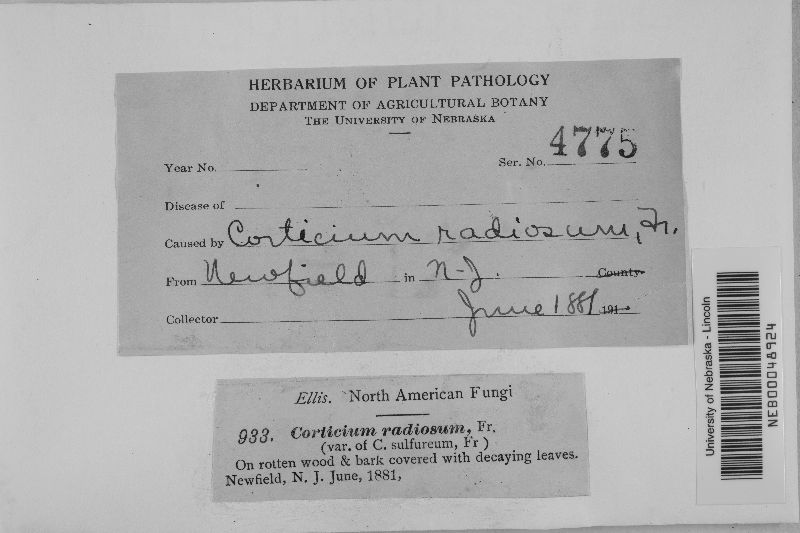 HERBARIUM OF PLANT PATHOLOGY
DEPARTMENT OF AGRICULTURAL BOTANY
THE UNIVERSITY OF NEBRASKA
Year No. Ser. No. 4775
Disease of
Caused by Corticium radiosum, Fr.
From Newfield in N-J. County
Collector June 1881 191
Ellis. North American Fungi
933. Corticium radiosum, Fr.
(var. of C. sulfureum, Fr )
On rotten wood & bark covered with decaying leaves.
Newfield, N. J. June, 1881,
University of Nebraska - Lincoln
NEB00048924